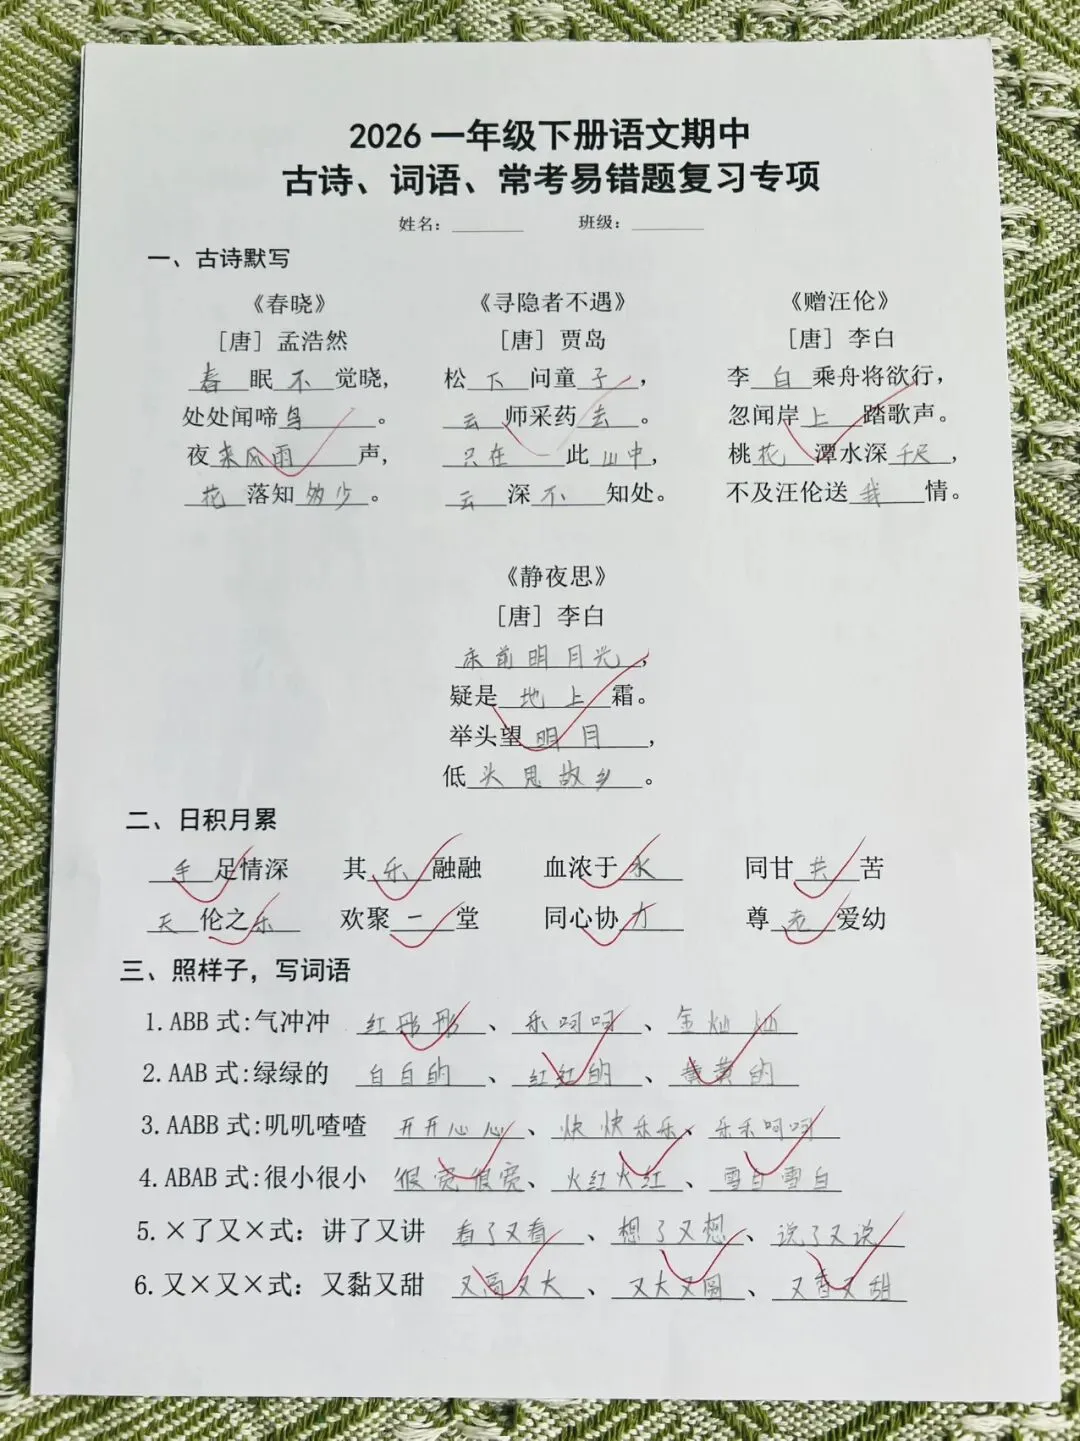 2026 一年级下册语文期中
古诗、词语、常考易错题复习专项
姓名：________ 班级：________
一、古诗默写
《春晓》 《寻隐者不遇》 《赠汪伦》
［唐］孟浩然 ［唐］贾岛 ［唐］李白
春眠不觉晓， 松下问童子， 李白乘舟将欲行，
处处闻啼鸟。 云师采药去。 忽闻岸上踏歌声。
夜来风雨声， 只在此山中， 桃花潭水深千尺，
花落知多少。 云深不知处。 不及汪伦送我情。
《静夜思》
［唐］李白
床前明月光，
疑是地上霜。
举头望明月，
低头思故乡。
二、日积月累
手足情深 其乐融融 血浓于水 同甘共苦
天伦之乐 欢聚一堂 同心协力 尊老爱幼
三、照样子，写词语
1.ABB 式:气冲冲 红彤彤、乐呵呵、金灿灿
2.AAB 式:绿绿的 白白的、红红的、黄黄的
3.AABB 式:叽叽喳喳 开开心心、快快乐乐、乐乐呵呵
4.ABAB 式:很小很小 很宽很宽、火红火红、雪白雪白
5.×了又×式：讲了又讲 看了又看、想了又想、说了又说
6.又×又×式：又黏又甜 又高又大、又大又圆、又香又甜